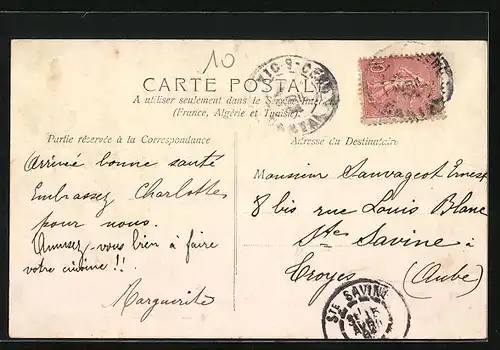 10
CARTE POSTALE
A utiliser seulement dans le Service
(France, Algérie et Tunisie).
Partie réservée à la Correspondance
Adresse du Destinataire
Arrivée bonne santé
Embrassez Charlotte
pour nous.
Amusez-vous bien à faire
votre cuisine !!.
Marguerite
Monsieur Sauvageot Ernest
8 bis rue Louis Blanc
Ste Savine à
Troyes (Aube)
STE SAVINE